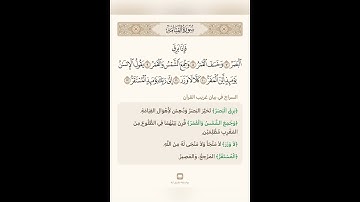 سُورَةُ القِيَامَةِ
فَإِذَا بَرِقَ
ٱلۡبَصَرُ ٧ وَخَسَفَ ٱلۡقَمَرُ ٨ وَجُمِعَ ٱلشَّمۡسُ وَٱلۡقَمَرُ ٩ يَقُولُ ٱلۡإِنسَٰنُ
يَوۡمَئِذٍ أَيۡنَ ٱلۡمَفَرُّ ١٠ كَلَّا لَا وَزَرَ ١١ إِلَىٰ رَبِّكَ يَوۡمَئِذٍ ٱلۡمُسۡتَقَرُّ ١٢
السراج في بيان غريب القرآن
﴿بَرِقَ الْبَصَرُ﴾ تَحَيَّرَ الْبَصَرُ وَدُهِشَ لِأَهْوَالِ القِيَامَةِ.
﴿وَجُمِعَ الشَّمْسُ وَالْقَمَرُ﴾ قُرِنَ بَيْنَهُمَا فِي الطُّلُوعِ مِنَ
المَغْرِبِ مُظْلِمَيْنِ.
﴿لَا وَزَرَ﴾ لَا مَلْجَأَ وَلَا مَنْجَى لَهُ مِنَ اللهِ.
﴿الْمُسْتَقَرُّ﴾ المَرْجِعُ، وَالمَصِيرُ.